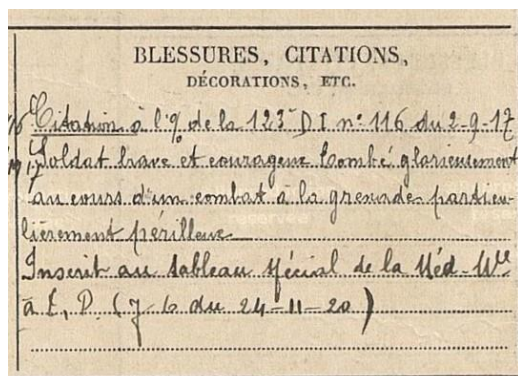 BLESSURES, CITATIONS,
DÉCORATIONS, ETC.
Citation à l'O. de la 123e D I n° 116 du 2-9-17
Soldat brave et courageux tombé glorieusement
au cours d'un combat à la grenade particu-
lièrement périlleux
Inscrit au tableau spécial de la Méd. Mre
à t, P. (J-6 du 24-11-20)